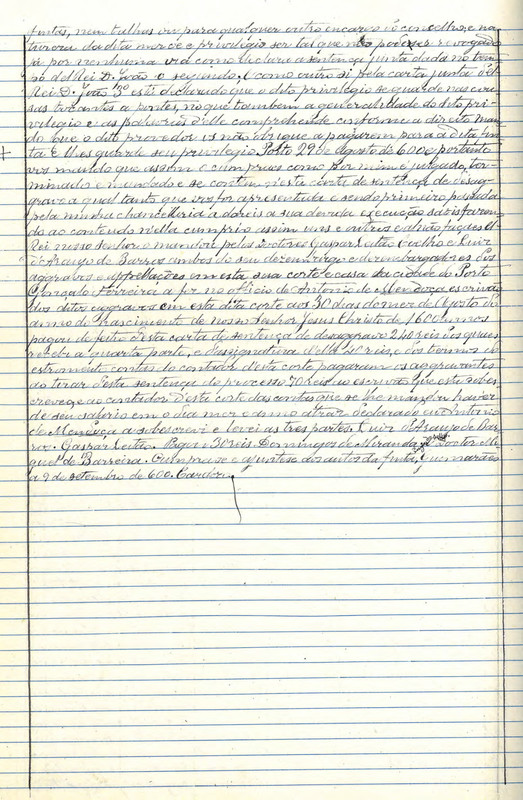 fintas, nem talhas ou para qualquer outro encargo do concelho, e na
trureza da dita mercê e privilegio ser tal que não podesse ser revogado
já por nenhuma via como declara a sentença junta dada no tem
po d'el Rei D. João o segundo, e como outro si pela carta junta d'El
Rei D. João 3º está declarado que o dito privilegio se guarde nas cou
sas tocantes a pontes, no que tambem a generalidade do dito pri-
vilegio e as palavras d'elle comprehende conforme a direito man
do que o dito provedor os não obrigue a pagarem para a dita fin
ta e lhes guarde seu privilegio. Porto 29 de Agosto de 600 e portanto
vos mando que assim o cumpraes como por mim é julgado, ter-
minado e mandado e se contem nesta carta de sentença de desag-
gravo a qual tanto que vos for apresentada e sendo primeiro passada
pela minha chancellaria a dareis a sua devida execução satisfazen
do ao contendo n'ella cumprio assim uns e outros e al não façaes. El-
Rei nosso senhor o mandou pelos Doutores Gaspar Leitão Coelho e Luiz
d'Araujo de Barros ambos do seu desembargo e desembargadores dos
aggravos e appellações em esta sua corte e casa da cidade do Porto
Gonçalo Ferreira a fez no officio de Antonio de Mendoça escrivão
dos ditos aggravos em esta dita corte aos 30 dias do mez de Agosto do
anno do Nascimento de nosso Senhor Jesus Christo de 1600 annos
pagou de feitio d'esta carta de sentença de desaggravo 240 reis dos quaes
recebi a quarta parte, e d'assignatura d'ella 40 reis, e dos termos do
estromento contas do contador d'esta corte pagaram os aggravantes
ao tirar d'esta sentença do processo 70 reis ao escrivão que esta sobes-
creveu e ao contador d'esta corte das contas que se lhe mandou haver
de seu salario em o dia mez e anno atraz declarado eu Antonio
de Mendoça a subscrevi e levei as tres partes. Luiz d'Araujo de Bar
ros. Gaspar Leitão. Pagou 30 reis. Domingos de Miranda. Doutor Mi
guel de Barreira. Cumpra-se e ajunte-se aos autos da finta, Guimarães
a 9 de setembro de 600. Cardoso.